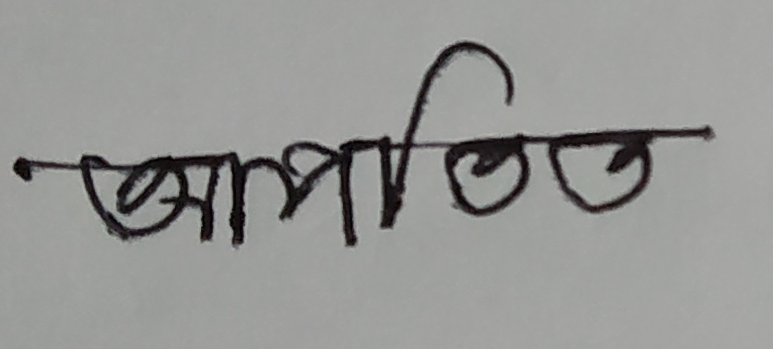 আপতিত